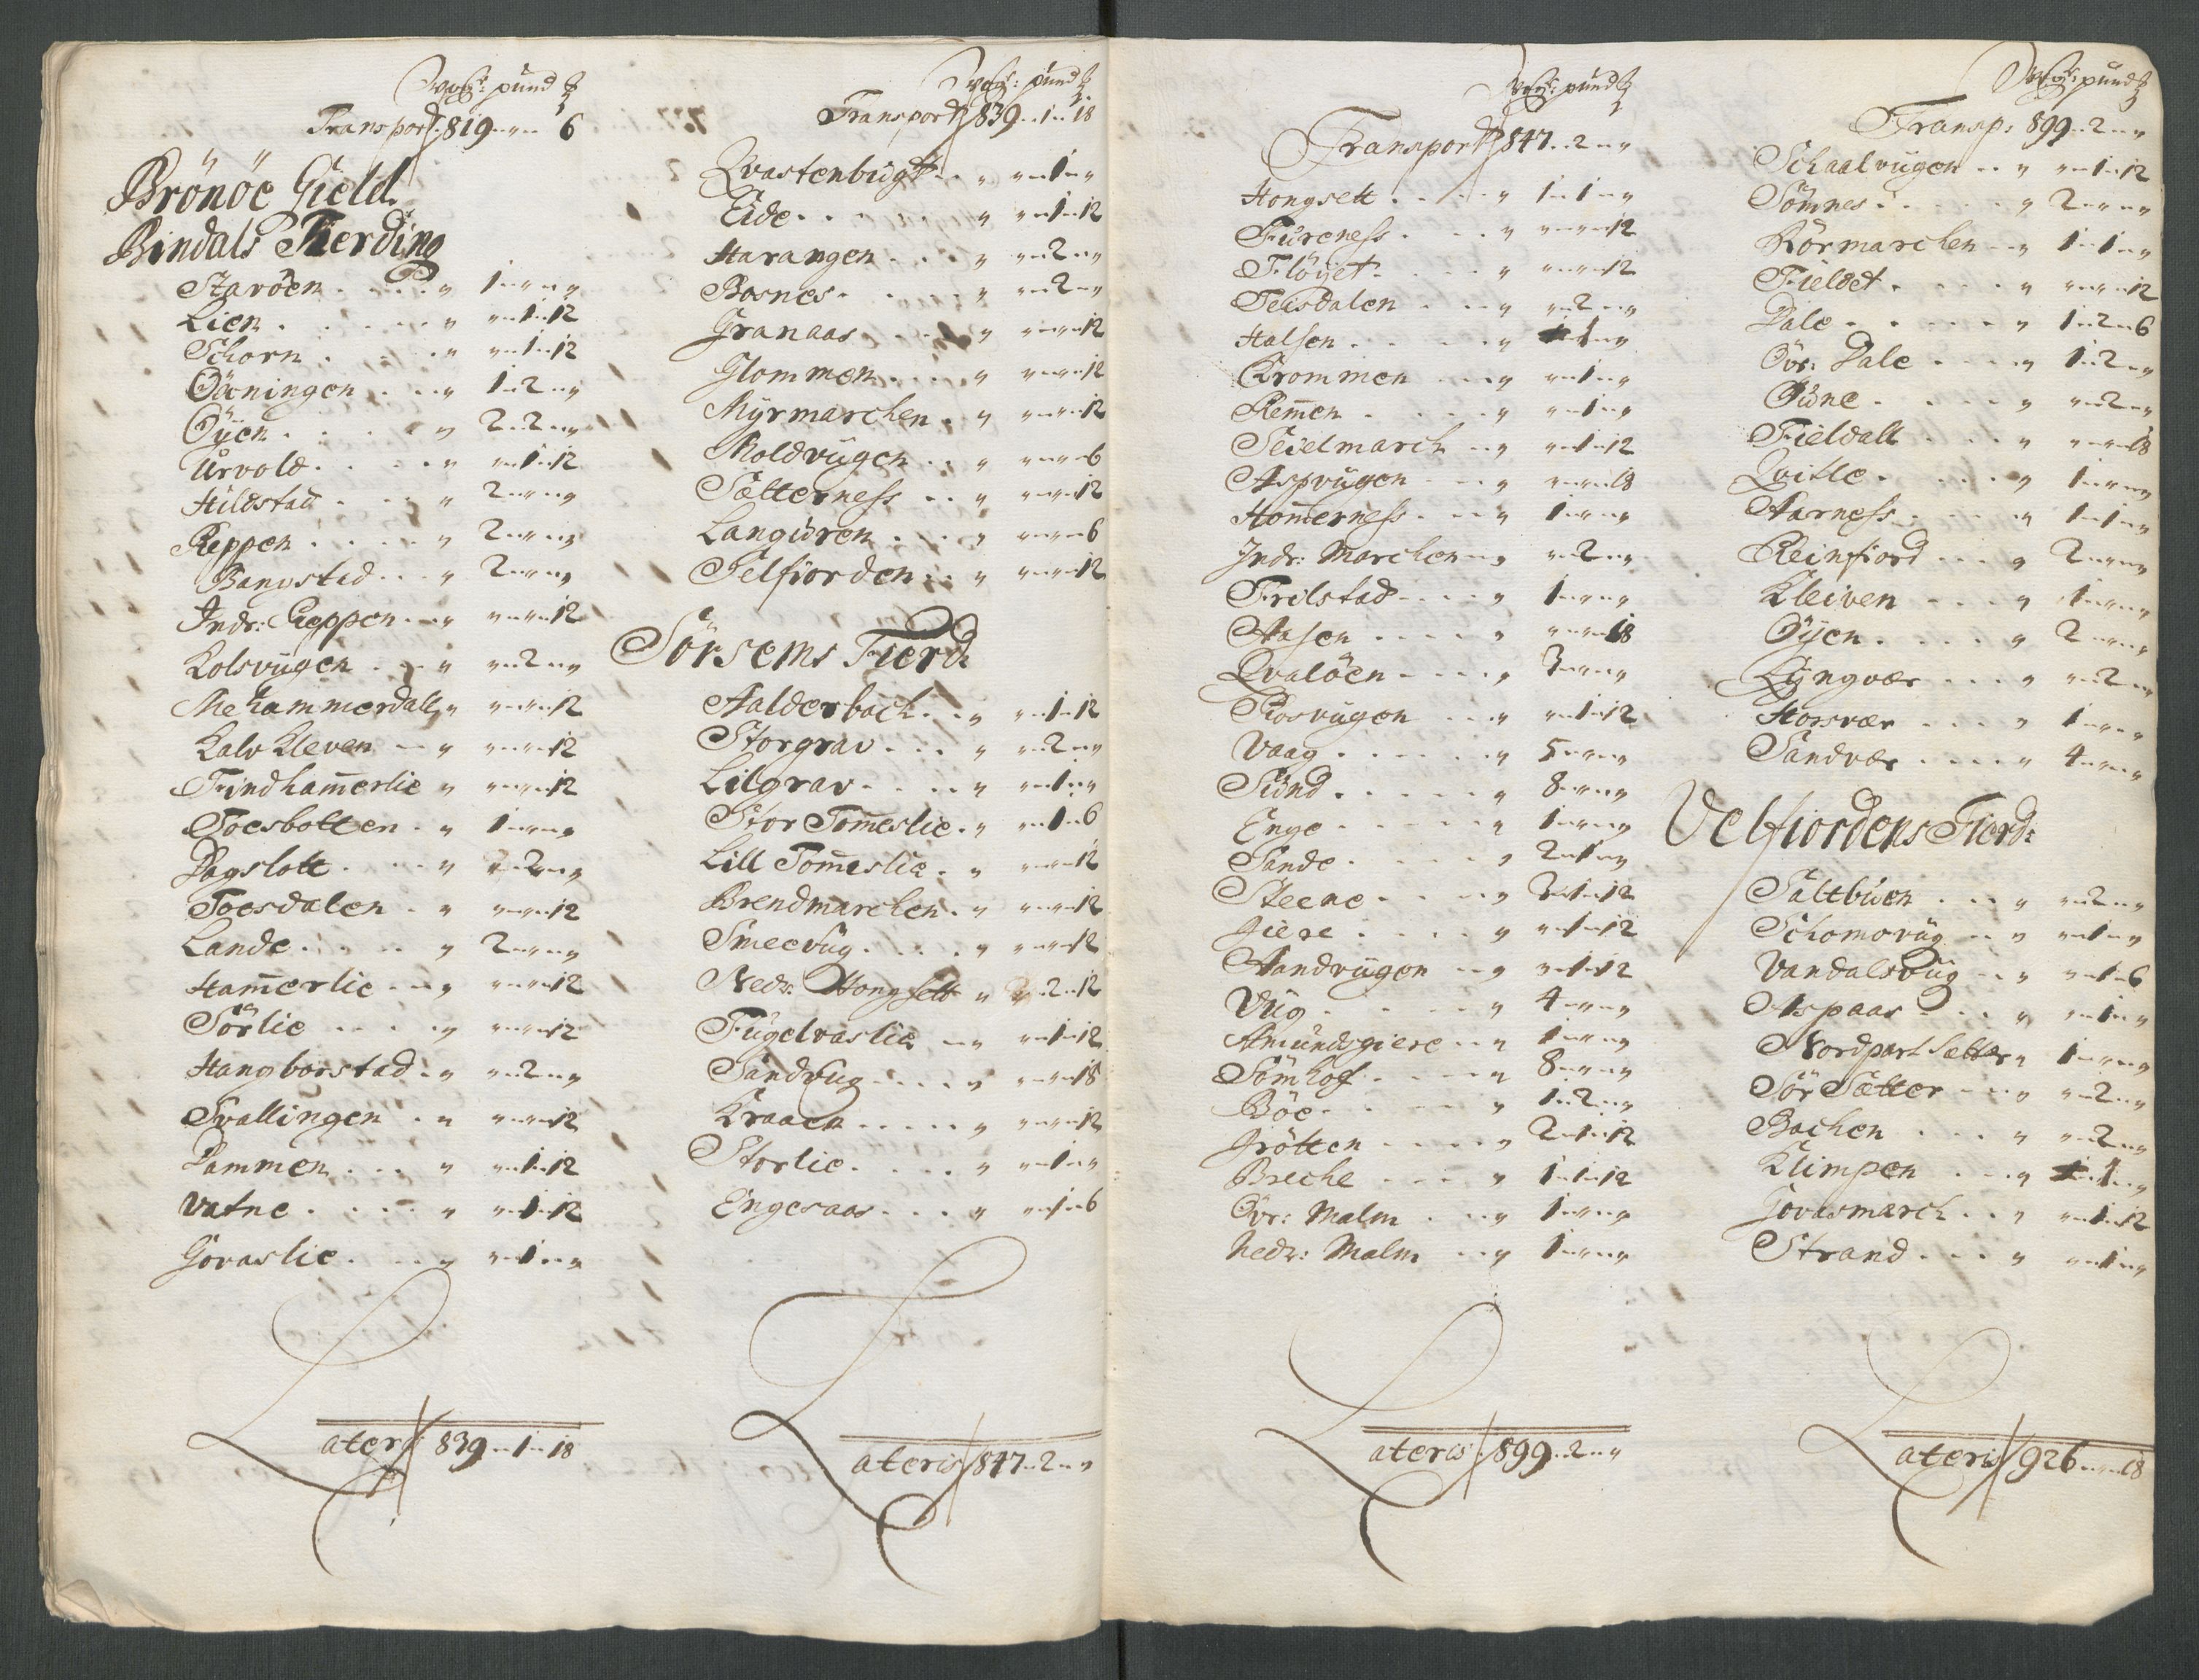 Wog: pund
Transport 819 „ 6
Brönöe Gield.
Bindals Fierding
Staröen . . . „ 1 „ „
Lien . . . . „ „ 1 12
Schorn . . . „ „ 1 12
Öxningen . . „ 1 2 „
Öÿen . . . . „ 2 2 „
Urvold . . . „ „ 1 12
Hildstad . . „ 2 „ „
Reppen . . . „ 2 „ „
Bangstad . . „ 2 „ „
Indr: Reppen . . „ „ „ 12
Kolsvügen . . „ „ 2 „
Mehammerdall „ „ „ 12
Kalv Kleven . „ „ „ 12
Trindham̅erlie „ „ „ 12
Toesbotten . „ 1 „ „
Dagslott . . „ 2 „
Toesdalen . „ „ „ 12
Lande . . . „ 2 „ „
Ham̅erlie . . „ „ „ 12
Sörlie . . . „ „ „ 12
Hangborstad . „ „ 2 „
Svallingen . „ „ „ 12
Dammen . . . „ „ 1 12
Vatne . . . „ „ 1 12
Govaslie . . „ „ 1 „
Lateris 839 1 18
Wog: pund
Transport 839 1 18
Qvastenbügt . . „ „ 1 „
Eide . . . . „ „ 1 12
Harangen . . . „ „ 2 „
Bosnes . . . „ „ 2 „
Granaas . . . „ „ „ 12
Glommen . . . „ „ „ 12
Mÿrmarchen . „ „ „ 12
Moldvügen . . „ „ „ 6
Sætterness . . „ „ „ 12
Langüren . . . „ „ „ 6
Selfiorden . . „ „ „ 12
Sörsems Fierd:
Aalderbach . . „ „ 1 12
Storgrav . . . „ „ 2 „
Lilgrav . . . „ „ 1 „
Stor Tom̅eslie . „ „ 1 6
Lill Tom̅eslie . „ „ „ 12
Brendmarchen . „ „ „ 12
Smeevüg . . . „ „ „ 12
Nedr: Hongsett „ 2 12
Fügelvaslie . „ „ 1 12
Sandvüg . . . „ „ „ 18
Kraaen . . . „ „ „ 12
Storlie . . . „ „ 1 „
Engesaas . . . „ „ 1 6
Lateris 847 2 „
Wog: pund
Transport 847 2 „
Hongsett . . . „ 1 1 „
Füreness . . . „ „ „ 12
Flöÿet . . . „ „ „ 12
Teisdalen . . „ „ 2 „
Halsen . . . „ 1 „
Krommen . . . „ „ 1 „
Rem̅en . . . . „ „ 1 „
Seielmarch . . „ „ 1 12
Aspvügen . . „ „ „ 18
Hom̅erness . . „ 1 „ „
Indr: Marchen . „ „ 2 „
Frilstad . . . „ 1 „ „
Aasen . . . . „ „ „ 18
Qvalöen . . . „ 3 „ „
Rosvügen . . „ „ 1 12
Vaag . . . . „ 5 „ „
Sund . . . . „ 8 „ „
Enge . . . . „ 1 „ „
Sande . . . . „ 2 1 „
Steene . . . „ 2 1 12
Giere . . . . „ „ 1 12
Aandvügen . . „ „ 1 12
Vüg . . . . „ 4 „ „
Amündsgiere . „ 1 „ „
Sömhof . . . „ 8 „ „
Böe . . . . „ 1 2 „
Grötten . . . „ 2 1 12
Breche . . . „ 1 1 12
Övr: Malm . . „ 1 „ „
Nedr: Malm . . „ 1 „ „
Lateris 899 2 „
Wog: pund
Transp: 899 2 „
Schaalvügen . . „ „ 1 12
Sömnes . . . . „ 2 „ „
Rörmarchen . „ 1 1 „
Fieldet . . . „ „ „ 12
Dale . . . . „ 1 2 6
Övr: Dale . . „ 1 2 „
Düne . . . . „ „ 2 „
Fieldall . . . „ „ „ 18
Qvitle . . . „ 1 „ „
Aarness . . . „ 1 1 „
Reinfiord . . „ 2 „ „
Kleiven . . . „ 1 „ „
Öÿen . . . . „ 2 „ „
Lÿngvær . . . „ „ 2 „
Horsvær . . . „ 1 „ „
Sandvær . . . „ 4 „ „
Velfiordens Fierd:
Saltbüen . . . „ „ 2 „
Schomovüg . . „ „ 1 „
Vandalsvüg . . „ „ 1 6
Aspaas . . . „ „ 1 „
Nordpart Sætter „ 1 „ „
Sör Sætter . . „ „ 2 „
Bachen . . . „ „ 2 „
Klimpen . . . „ 1 „
Govasmarch . . „ „ 1 12
Strand . . . „ „ 1 „
Lateris 926 „ 18